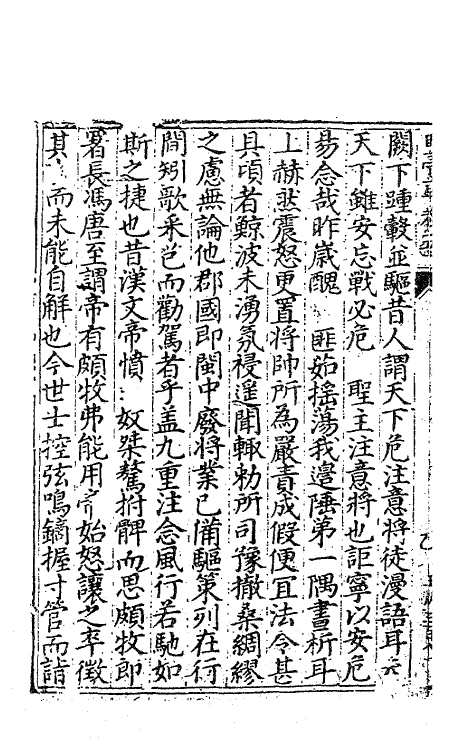 闕下踵轂並驅昔人謂天下危注意將徒漫語耳
天下雖安忘戰必危 聖主注意將也詎寧以安危
易念哉昨歲醜 匪茹搖蕩我邊陲第一隅畫析耳
上赫然震怒更置將帥所為嚴責成假便宜法令甚
具頃者鯨波未湧氛祲遥聞輙勅所司豫撤桑綢繆
之慮無論他郡國即閩中廢將業已備驅策列在行
間矧歌采芑而勸駕者乎盖九重注念風行若馳如
斯之捷也昔漢文帝憤 奴桀驁拊髀而思頗牧即
署長馮唐至謂帝有頗牧弗能用帝始怒讓之卒徴
其 而未能自解也今世士控弦鳴鏑握寸管而詣